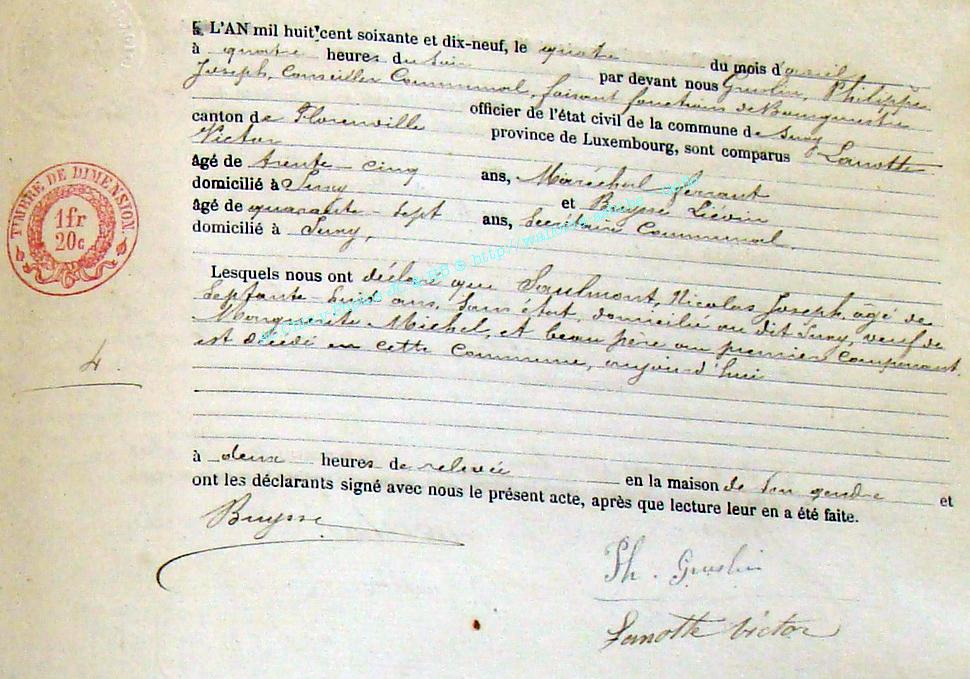 L'AN mil huit cent soixante et dix-neuf, le quatre du mois d'avril
à quatre heures du soir par devant nous Guslin, Philippe
Joseph, Conseiller Communal, faisant fonctions de Bourgmestre
officier de l'état civil de la commune de Suxy
canton de Florenville province de Luxembourg, sont comparus Lanotte
Victor
âgé de trente-cinq ans, Maréchal ferrant
domicilié à Suxy et Buysse Liévin
âgé de quarante-sept ans, Secrétaire Communal
domicilié à Suxy,
Lesquels nous ont déclaré que Saulmont, Nicolas Joseph, âgé de
septante-huit ans, sans état, domicilié au dit Suxy, veuf de
Marguerite Michel, et beau père au premier comparant
est décédé en cette Commune, aujourd'hui
à deux heures de relevée en la maison de son gendre et
ont les déclarants signé avec nous le présent acte, après que lecture leur en a été faite.
Buysse
Ph. Guslin
Lanotte Victor
TIMBRE DE DIMENSION.
1 fr
20 c
4.